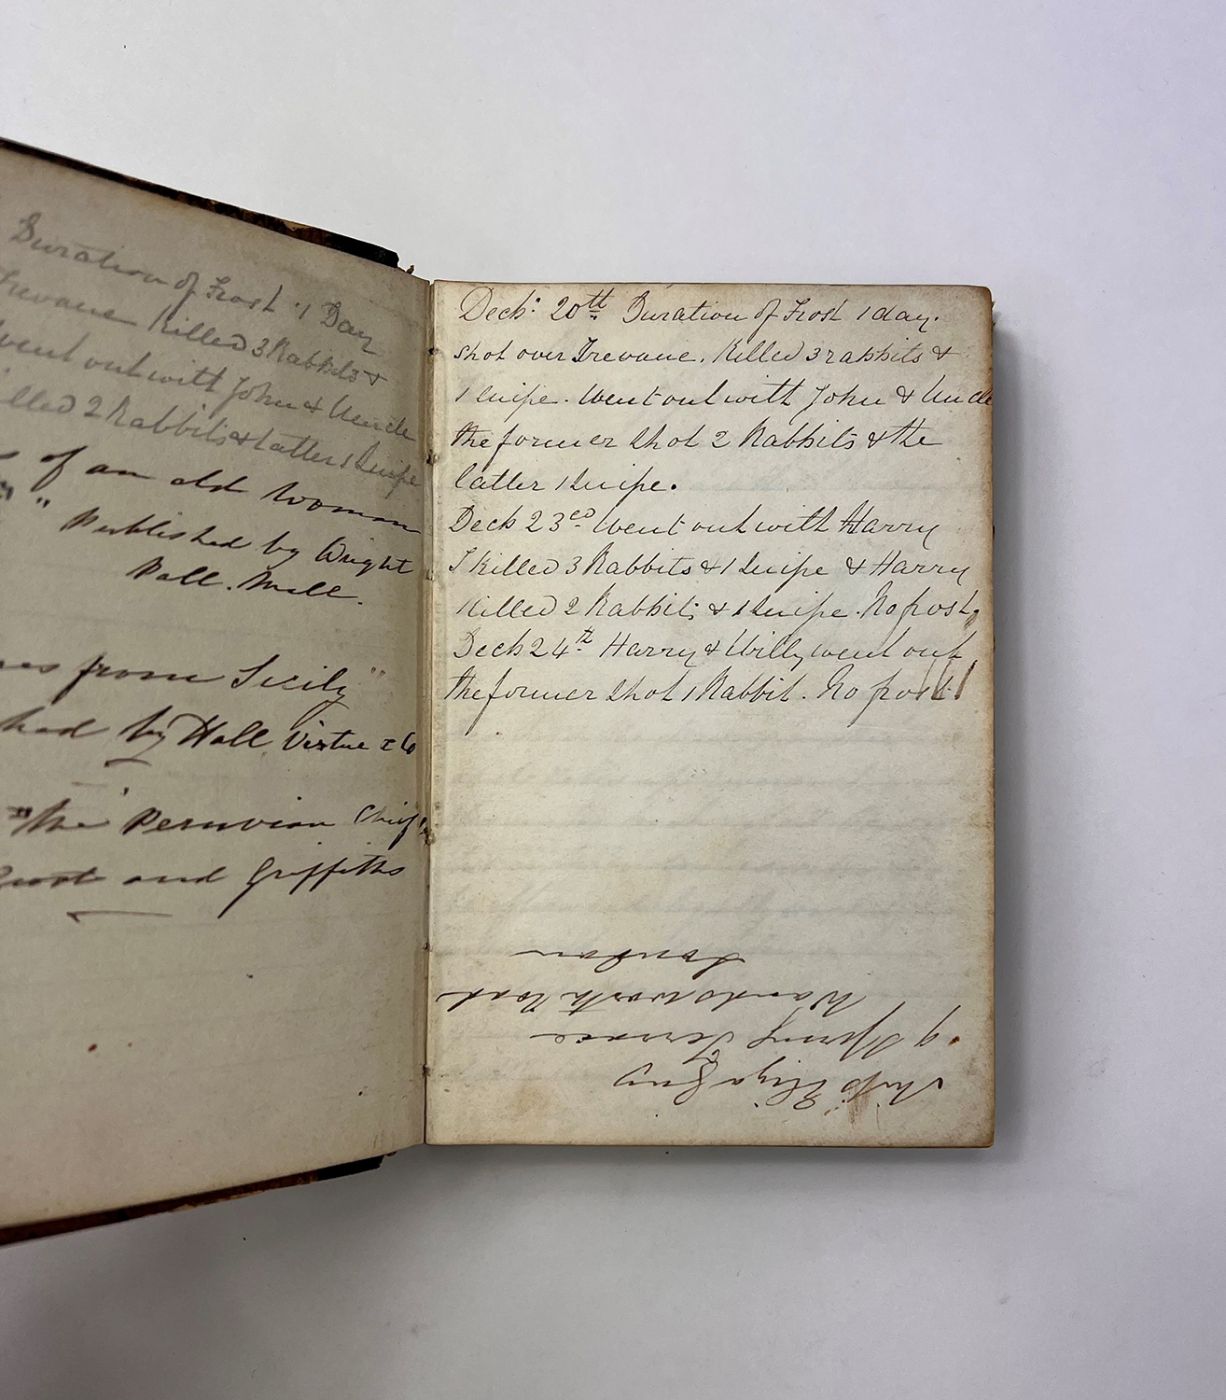 Duration of Frost 1 Day
Trevane Killed 3 Rabbits &
went out with John & Uncle
illed 2 Rabbits & latter 1 Snipe
of an old woman
" Published by Wright
Pall. Mall.
from Sicily"
hed by Hall Virtue & Co
"the Peruvian Chief"
Grant and Griffiths
Decb: 20th Duration of Frost 1 day.
shot over Trevane. Killed 3 rabbits &
1 Snipe. Went out with John & Uncle
the former shot 2 Rabbits & the
latter 1 Snipe.
Decb 23ed Went out with Harry
I Killed 3 Rabbits & 1 Snipe & Harry
Killed 2 Rabbits & 1 Snipe. No frost,
Decb 24th Harry & Willy went out
the former shot 1 Rabbit. No frost
Miss Eliza
9 Spring Terrace
Wandsworth Road
London